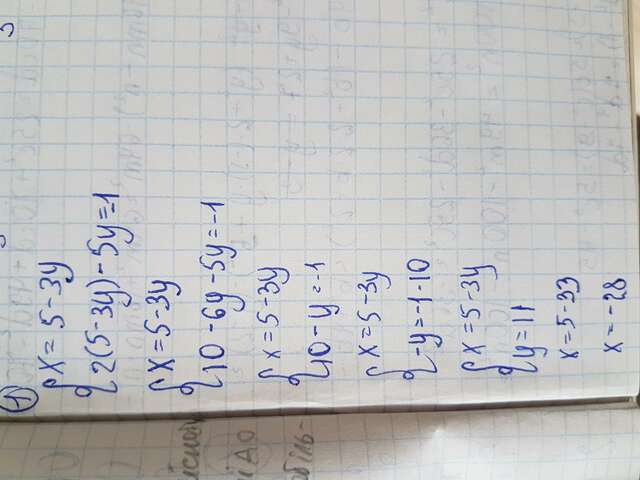 1
x = 5 - 3y
2(5-3y) - 5y = -1
x = 5-3y
10 - 6y - 5y = -1
x = 5-3y
10 - y = -1
x = 5-3y
-y = -1-10
x = 5-3y
y = 11
x = 5-33
x = -28
існо
і АО
обіль-